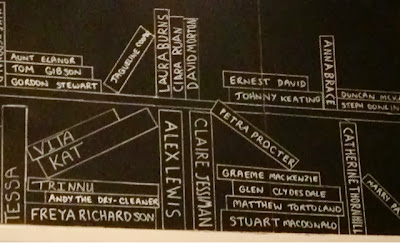 AUNT ELANOR
TOM GIBSON
GORDON STEWART
JAQUELINE
LAURA BURNS
CIARA RUAN
DAVID MORTON
ERNEST DAVID
JOHNNY KEATING
ANNA BRACE
DUNCAN
STEM
VITA
KAT
TESSA
TRINNU
ANDY THE DRY-CLEANER
FREYA RICHARDSON
ALEX LEWIS
CLAIRE JESSIMAN
PETRA PROCTER
GRAEME MACKENZIE
GLEN CLYDESDALE
MATTHEW TORTOLANO
STUART MACDONALD
CATHERINE THORNHILL
HARRY